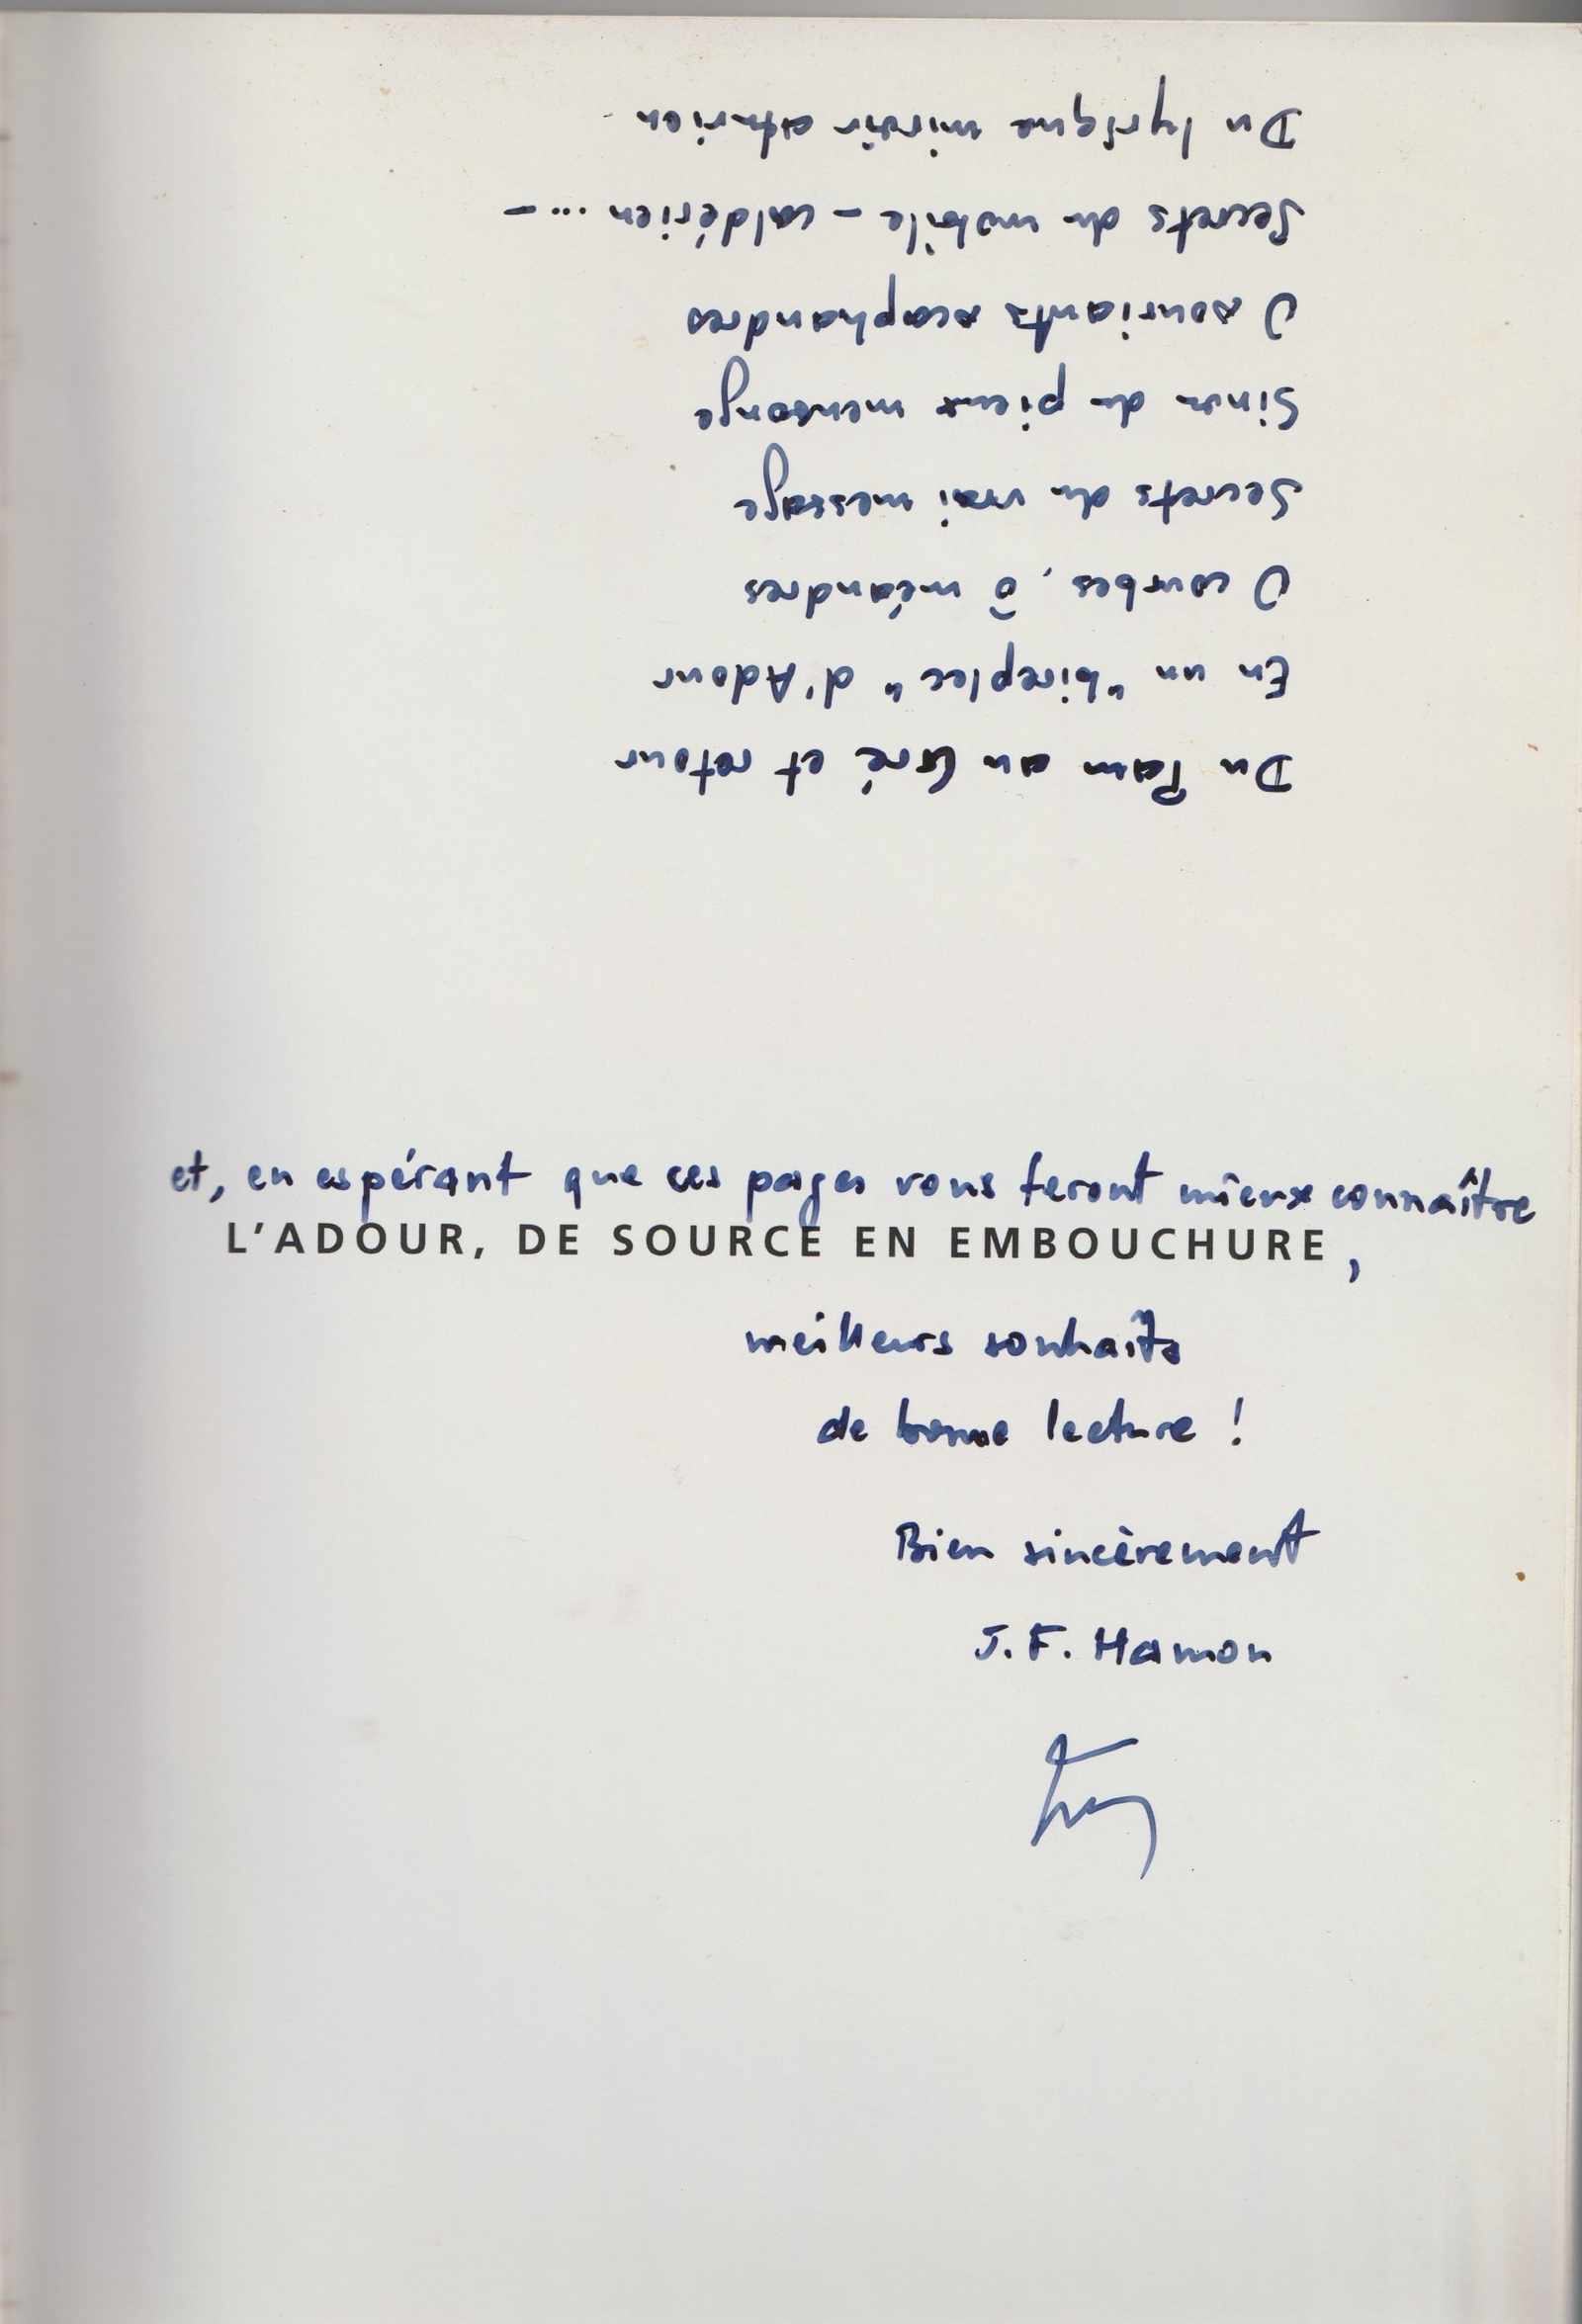 Du au et retour
En un d'Adour
O courbes, ô méandres
Secrets du vrai message
Sinon du pieux mensonge
O souriants scaphandres
Secrets du mobile – caldérien ... –
Du lyrique miroir aturien
et, en espérant que ces pages vous feront mieux connaître
L'ADOUR, DE SOURCE EN EMBOUCHURE,
meilleurs souhaits
de bonne lecture !
Bien sincèrement
J. F. Hamon